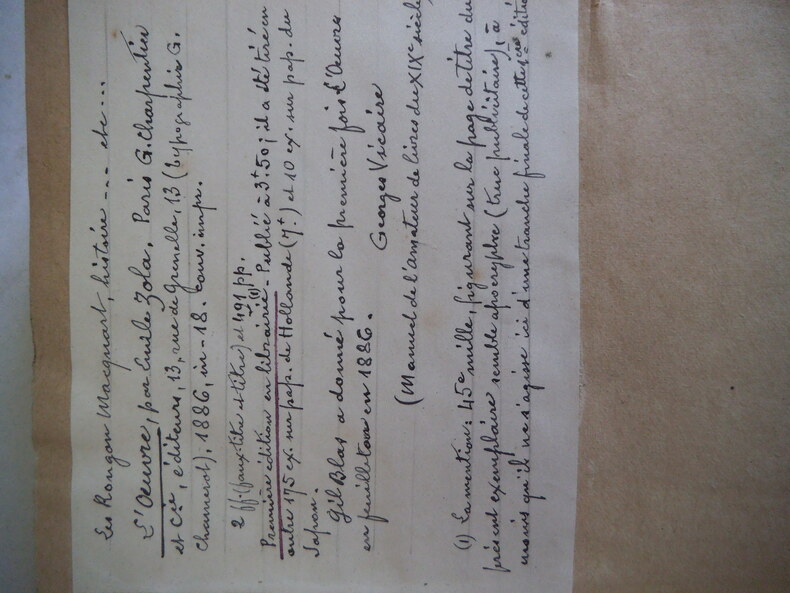 Les Rougon Macquart, histoire --- etc...
L'Œuvre, par Emile Zola. Paris G. Charpentier
et Cie, éditeurs, 13, rue de Grenelle, 13 (typographie G.
Chamerot), 1886, in-18. couv. impr.
2 ff. (faux-titre et titre) et 491 pp.
Première édition en librairie (1) - Publié à 3f.50; il a été tiré en
outre 175 ex. sur pap. de Hollande (7f.) et 10 ex. sur pap. du
Japon.
Gil Blas a donné pour la première fois L'Œuvre
en feuilleton en 1886.
Georges Vicaire
(Manuel de l'amateur de livres du XIXe siècle
(1) La mention: 45e mille, figurant sur la page de titre du
présent exemplaire semble apocryphe (truc publicitaire), à
moins qu'il ne s'agisse ici d'une tranche finale de cette 1ère édition